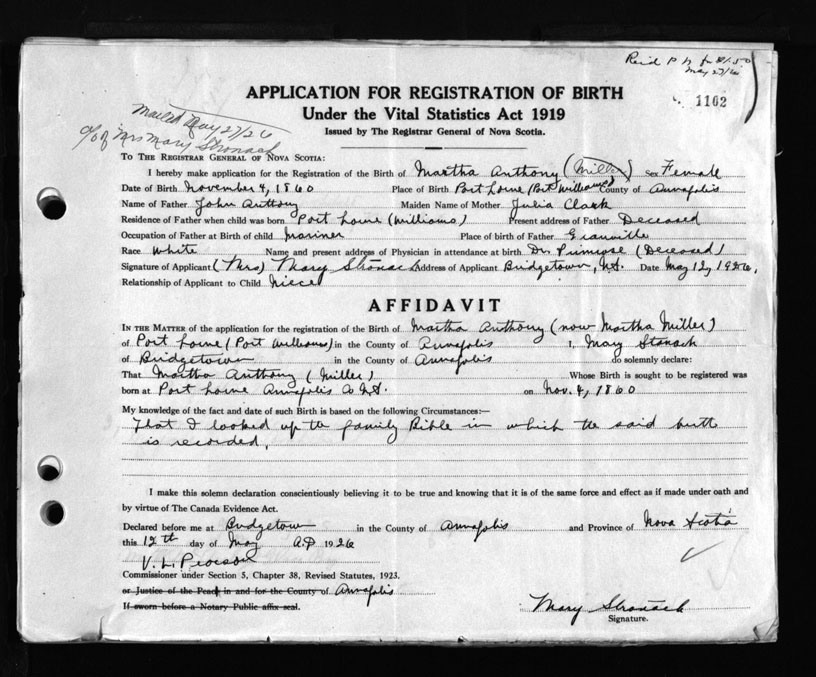 May 27/26
1102
APPLICATION FOR REGISTRATION OF BIRTH
Under the Vital Statistics Act 1919
Issued by The Registrar General of Nova Scotia.
Mailed May 27/26
c/o Mrs Mary Stronach
TO THE REGISTRAR GENERAL OF NOVA SCOTIA:
I hereby make application for the Registration of the Birth of Martha Anthony (Miller) Sex Female
Date of Birth November 4, 1860 Place of Birth Port Lorne (Port Williams) County of Annapolis
Name of Father John Anthony Maiden Name of Mother Julia Clark
Residence of Father when child was born Port Lorne (Williams) Present address of Father Deceased
Occupation of Father at Birth of child Mariner Place of birth of Father Granville
Race White Name and present address of Physician in attendance at birth Dr. Primrose (Deceased)
Signature of Applicant (Mrs) Mary Stronach Address of Applicant Bridgetown, N.S. Date May 12, 1926,
Relationship of Applicant to Child Niece
AFFIDAVIT
IN THE MATTER of the application for the registration of the Birth of Martha Anthony (now Martha Miller)
of Port Lorne (Port Williams) in the County of Annapolis I, Mary Stonach
of Bridgetown in the County of Annapolis do solemnly declare:
That Martha Anthony (Miller) Whose Birth is sought to be registered was
born at Port Lorne Annapolis Co N.S. on Nov. 4, 1860
My knowledge of the fact and date of such Birth is based on the following Circumstances:—
That I looked up the family Bible in which the said birth
is recorded.
I make this solemn declaration conscientiously believing it to be true and knowing that it is of the same force and effect as if made under oath and
by virtue of The Canada Evidence Act.
Declared before me at Bridgetown in the County of Annapolis and Province of Nova Scotia
this 12th day of May A.D 1926
V. L. Pearson
Commissioner under Section 5, Chapter 38, Revised Statutes, 1923.
or Justice of the Peace in and for the County of Annapolis
If sworn before a Notary Public affix seal.
Mary Stronach
Signature.